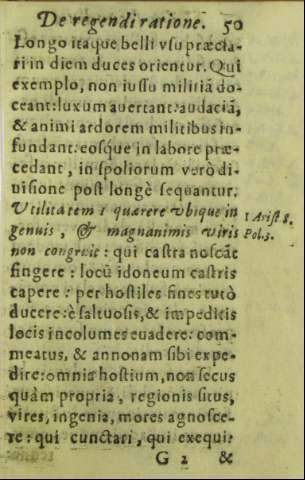 De regendi ratione. 50
Longo itaque belli vsu præcla-
ri in diem duces orientur. Qui
exemplo, non iussu militiā do-
ceant: luxum auertant: audaciā,
& animi ardorem militibus in-
fundant: eosque in labore præ-
cedant, in spoliorum verò di-
uisione post longè sequantur.
Vtilitatem i quærere vbique in
genuis, & magnanimis viris
non congruit: qui castra noscāt
fingere: locū idoneum castris
capere: per hostiles fines tutò
ducere: è saltuosis, & impeditis
locis incolumes euadere: com-
meatus, & annonam sibi expe-
dire: omnia hostium, non secus
quàm propria, regionis situs,
vires, ingenia, mores agnosce-
re: qui cunctari, qui exequi:
G 2 &
1 Arist 8.
Pol. 3.